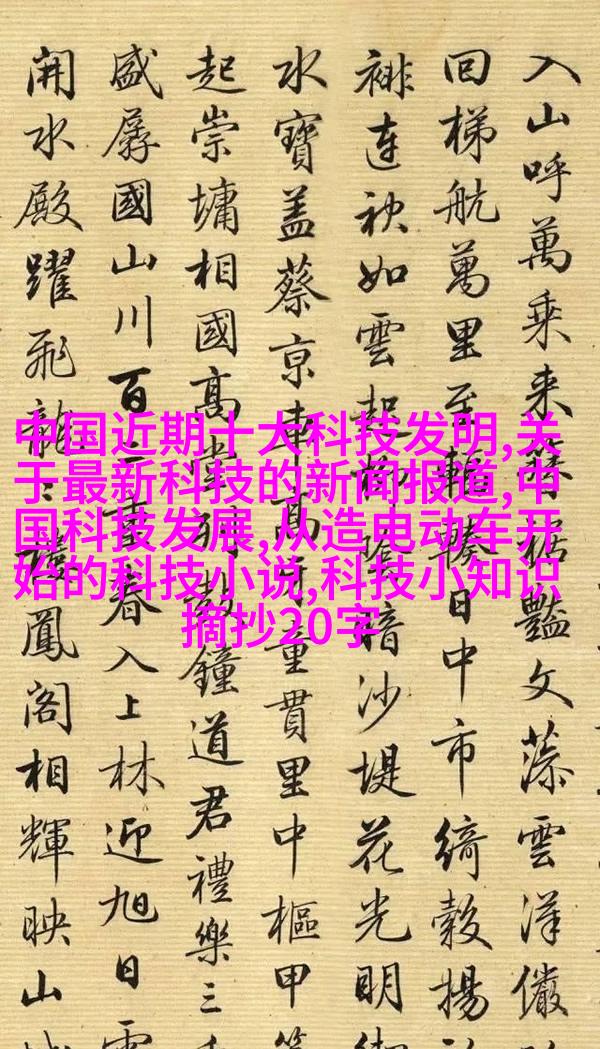 入山呼萬乘来豔文藻雲洋儼
回梯航萬里至日中市綺縠揚
連袂如雲起暗沙堤花光明
水寶盖蔡京車高牙童貫里中樞甲
起崇墉相國高鐘道君禮樂三
盛孱國山川百二春入上林迎旭日
開水殿躍飛龍鳳閣相輝映山
中国近期十大科技发明,关
于最新科技的新闻报道,中
国科技发展,从造电动车开
始的科技小说,科技小知识
摘抄20字